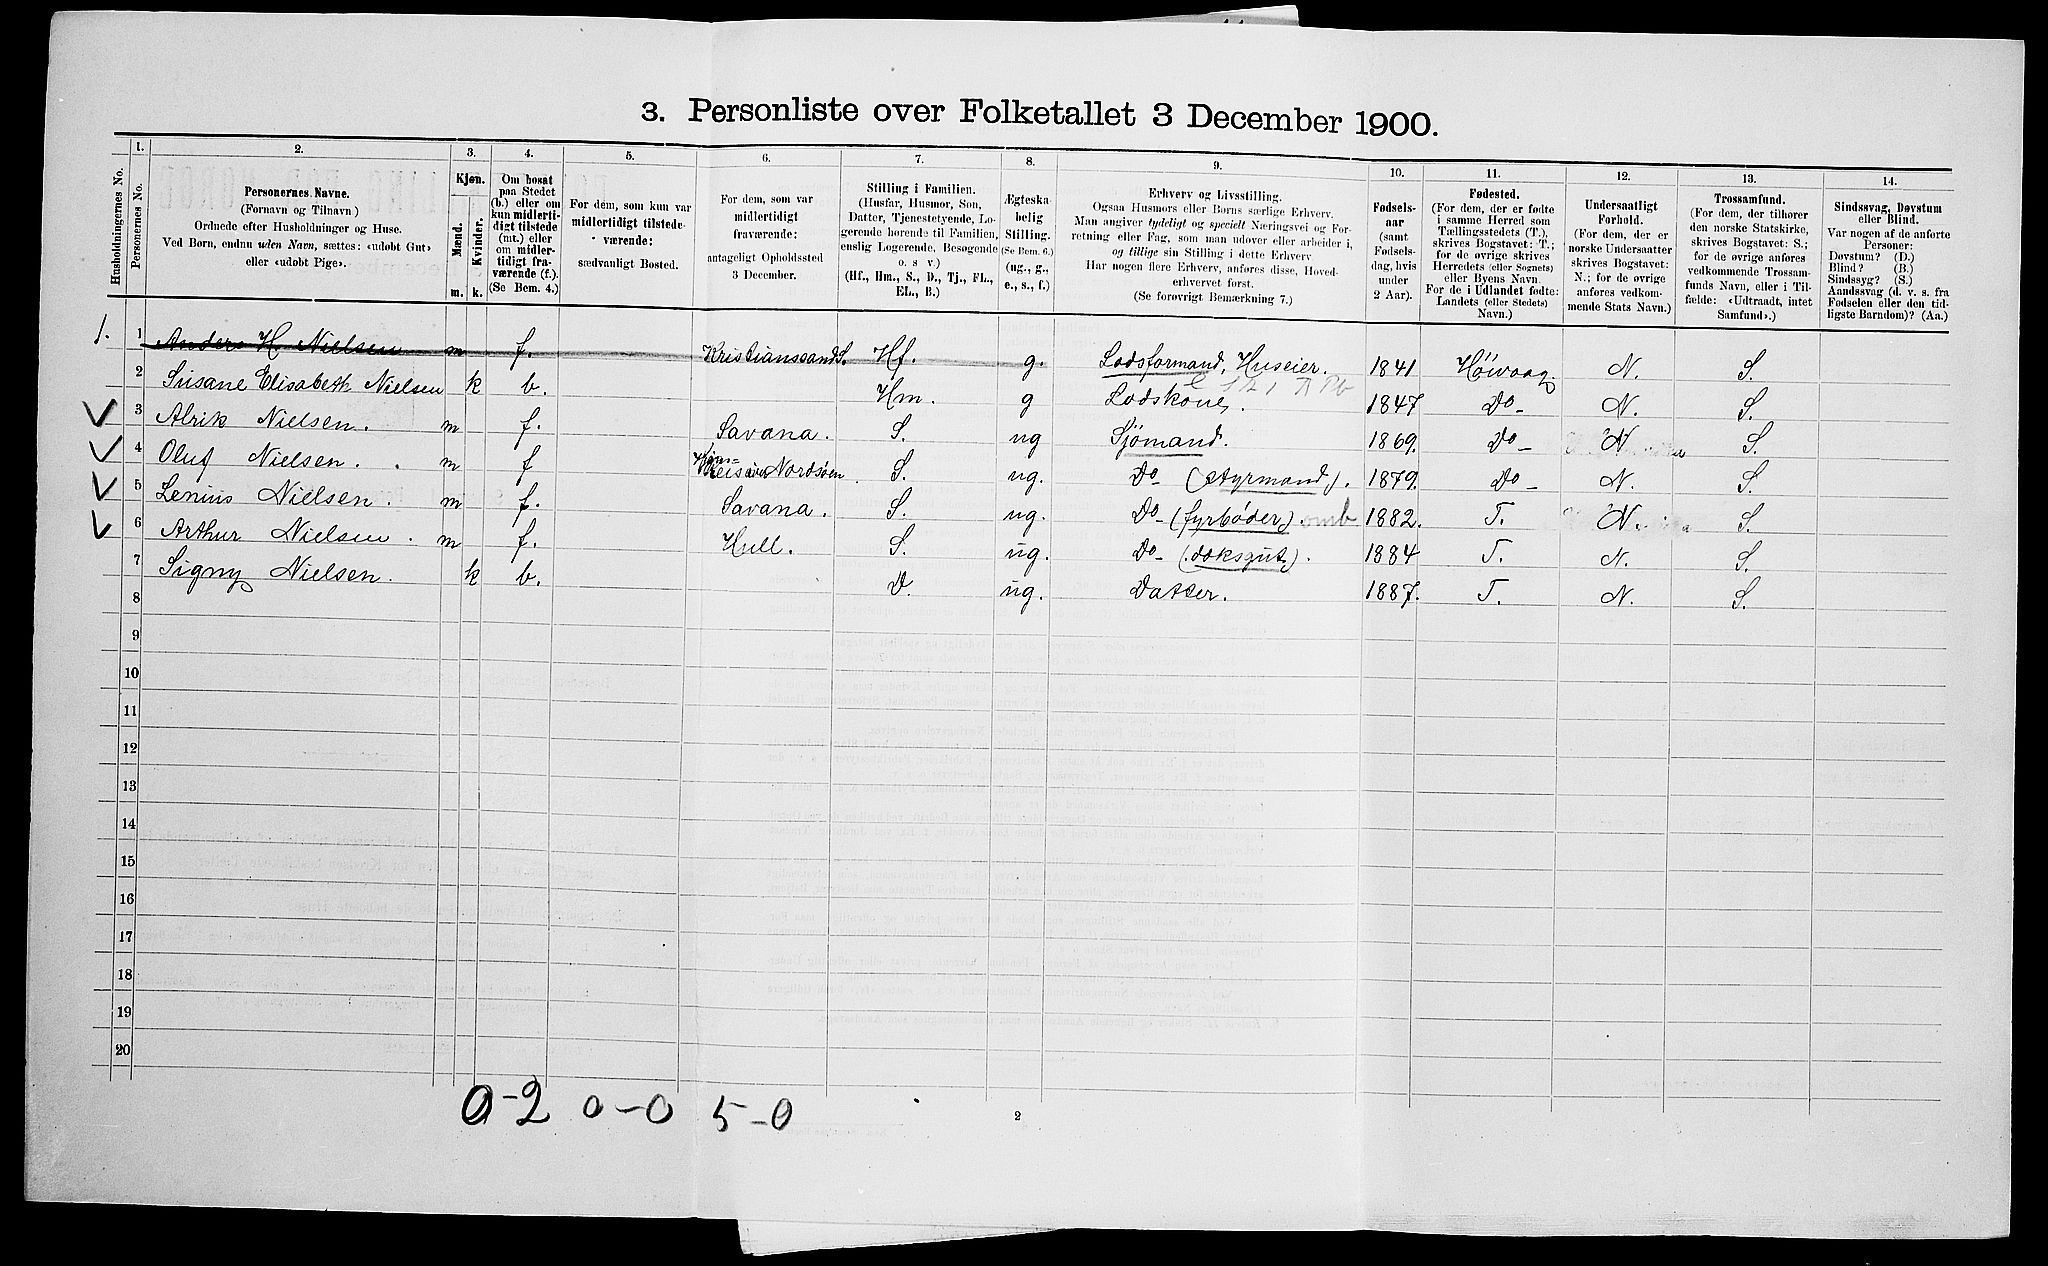 3. Personliste over Folketallet 3 December 1900.
Husholdningernes No.
1.
Personernes No.
2.
Personernes Navne.
(Fornavn og Tilnavn)
Ordnede efter Husholdninger og Huse.
Ved Børn, endnu uden Navn, sættes: «udøbt Gut»
eller «udøbt Pige».
3.
Kjøn.
Mænd.
Kvinder.
m. k.
4.
Om bosat
paa Stedet
(b.) eller om
kun midlerti-
digt tilstede
(mt.) eller
om midler-
tidigt fra-
værende (f.).
(Se Bem. 4.)
5.
For dem, som kun var
midlertidigt tilstede-
værende:
sædvanligt Bosted.
6.
For dem, som var
midlertidigt
fraværende:
antageligt Opholdssted
3 December.
7.
Stilling i Familien.
(Husfar, Husmor, Søn,
Datter, Tjenestetyende, Lo-
gerende hørende til Familien,
enslig Logerende, Besøgende
o. s. v.)
(Hf., Hm., S., D., Tj., FL.,
EL., B.)
8.
Ægteska-
belig
Stilling.
(Se Bem. 6.)
(ug., g.,
e., s., f.)
9.
Erhverv og Livsstilling.
Ogsaa Husmors eller Børns særlige Erhverv.
Man angiver tydeligt og specielt Næringsvei og For-
retning eller Fag, som man udøver eller arbeider i,
og tillige sin Stilling i dette Erhverv.
Har nogen flere Erhverv, anføres disse, Hoved-
erhvervet først.
(Se forøvrigt Bemærkning 7.)
10.
Fødsels-
aar
(samt
Fødsels-
dag, hvis
under
2 Aar).
11.
Fødested.
(For dem, der er fødte
i samme Herred som
Tællingsstedets (T.),
skrives Bogstavet: T.;
for de øvrige skrives
Herredets (eller Sognets)
eller Byens Navn.
For de i Udlandet fødte:
Landets (eller Stedets)
Navn.)
12.
Undersaatligt
Forhold.
(For dem, der er
norske Undersaatter
skrives Bogstavet:
N.; for de øvrige
anføres vedkom-
mende Stats Navn.)
13.
Trossamfund.
(For dem, der tilhører
den norske Statskirke,
skrives Bogstavet: S.;
for de øvrige anføres
vedkommende Trossam-
funds Navn, eller i Til-
fælde: «Udtraadt, intet
Samfund».)
14.
Sindssvag, Døvstum
eller Blind.
Var nogen af de anførte
Personer:
Døvstum? (D.)
Blind? (B.)
Sindssyg? (S.)
Aandssvag (d. v. s. fra
Fødselen eller den tid-
ligste Barndom)? (Aa.)
1. 1 Anders H. Nielsen m f. Kristianssand S. Hf. g. Lodsformand, Huseier. 1841 Høivaag. N. S.
2 Susane Elisabeth Nielsen k b. Hm. g Lodskone. 1847 Do - N. S.
3 Alrik Nielsen. m f. Savana. S. ug Sjömand. 1869. Do - N S.
4 Oluf Nielsen. m f Nordsøen S. ug. Do - (styrmand). 1879. Do - N. S.
5 Lenius Nielsen. m f. Savana. S. ug. Do - (fyrbøder). 1882. T. N. S.
6 Arthur Nielsen. m f. Hull. S. ug. Do - (dæksgut). 1884 T. N. S.
7 Signy Nielsen. k b. D. ug. Datter. 1887. T. N. S.
8
9
10
11
12
13
14
15
16
17
18
19
20
0-2 0-0 5-0
2